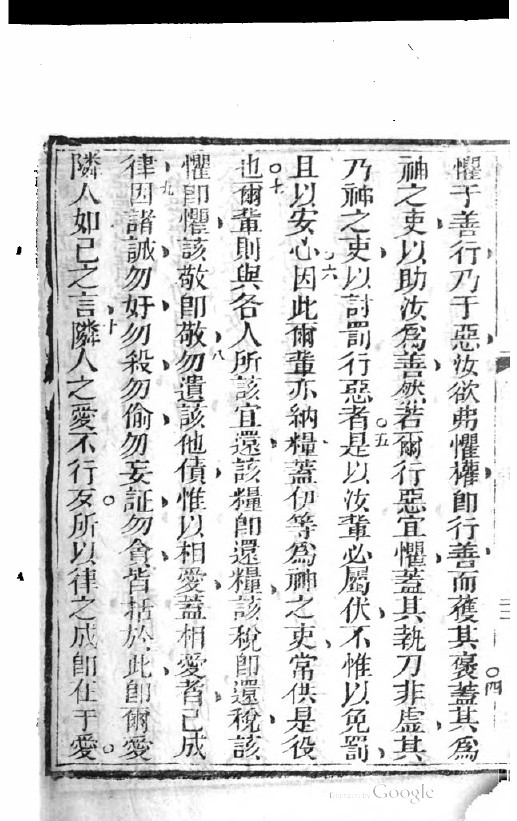 懼于善行乃于惡汝欲弗懼權即行善而獲其褒蓋其爲
四
神之吏以助汝爲善然若爾行惡宜懼蓋其執刀非虛其
乃神之吏以討罰行惡者是以汝輩必屬伏不惟以免罰
五
且以安心因此爾輩亦納糧蓋伊等爲神之吏常供是役
六
也爾輩則與各人所該宜還該糧即還糧該稅即還稅該
七
懼即懼該敬即敬勿遺該他債惟以相愛蓋相愛者已成
八
律因諸誡勿奸勿殺勿偷勿妄証勿貪皆括於此即爾愛
九
隣人如己之言隣人之愛不行歹所以律之成即在于愛
十
Google